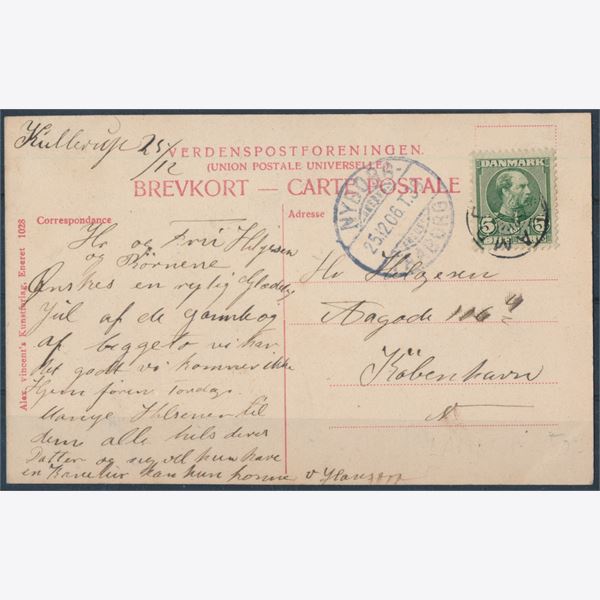 Kullerup 25/12
VERDENSPOSTFORENINGEN.
(UNION POSTALE UNIVERSELLE)
BREVKORT — CARTE POSTALE
DANMARK
5 5
NYBORG-
25.12.06
Correspondance
Adresse
Alex. Vincent's Kunstforlag, Eneret 1028
Hr og Fru Helgesen
og Börnene
Ønskes en rigtig Glædelig
Jul af de gamle og
af beggeto vi har
det godt vi kommer ikke
Hjem fören Torsdag
Mange Hilsener til
dem alle hils deres
Datter og sig vil hun have
en kan hun komme
Hr Helgesen
Aagade 106 4
Köbenhavn
N